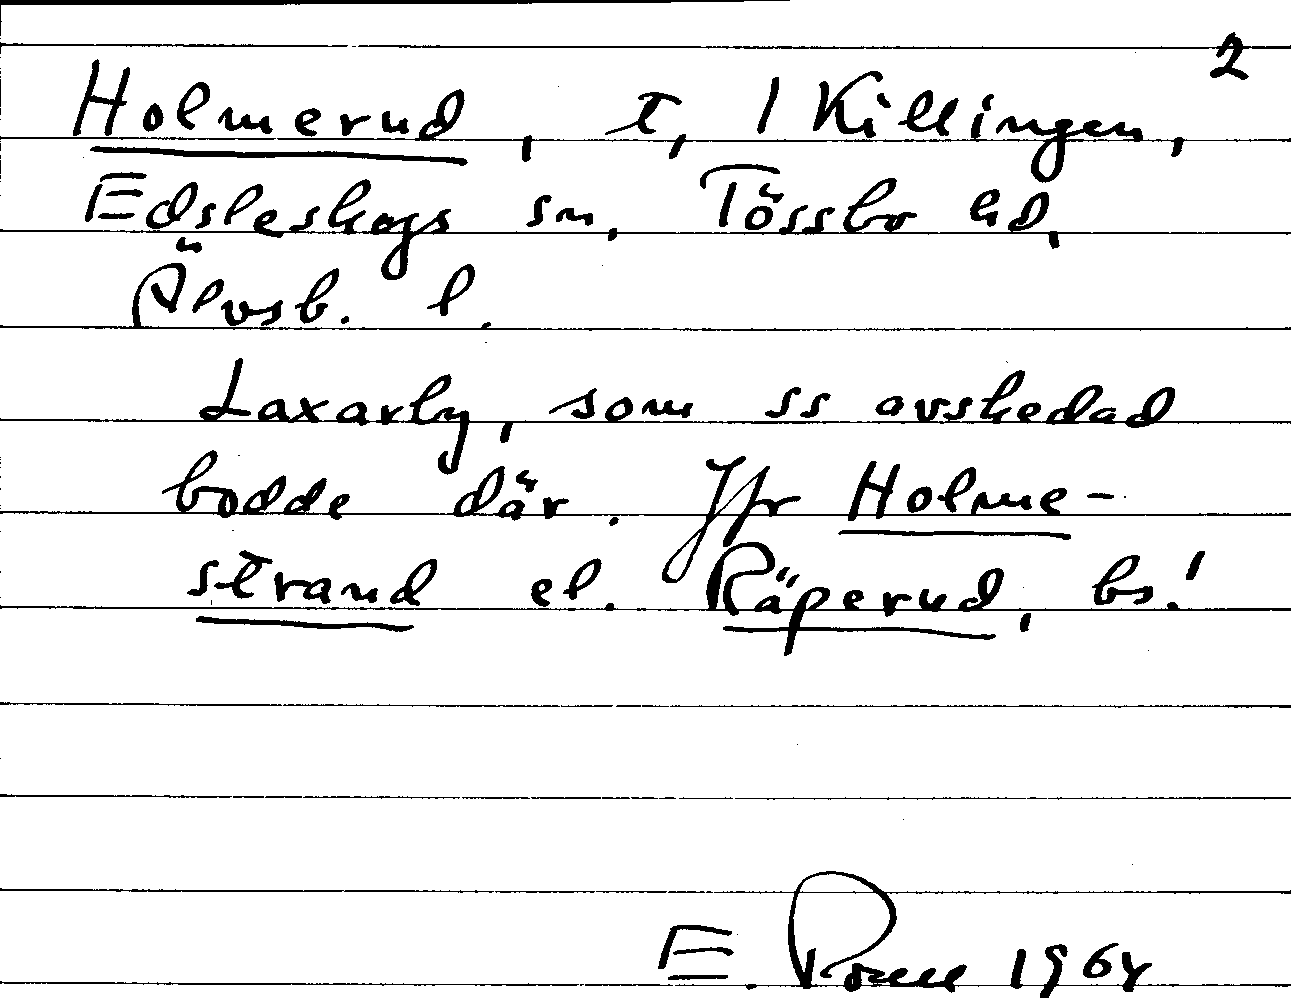 2
Holmerud, t, 1 Killingen,
Edsleskogs sn, Tössbo hd,
Älvsb. l.
Laxarby, som ss avskedad
bodde där. Jfr Holme-
strand el. Räperud, bs!
E. 1964